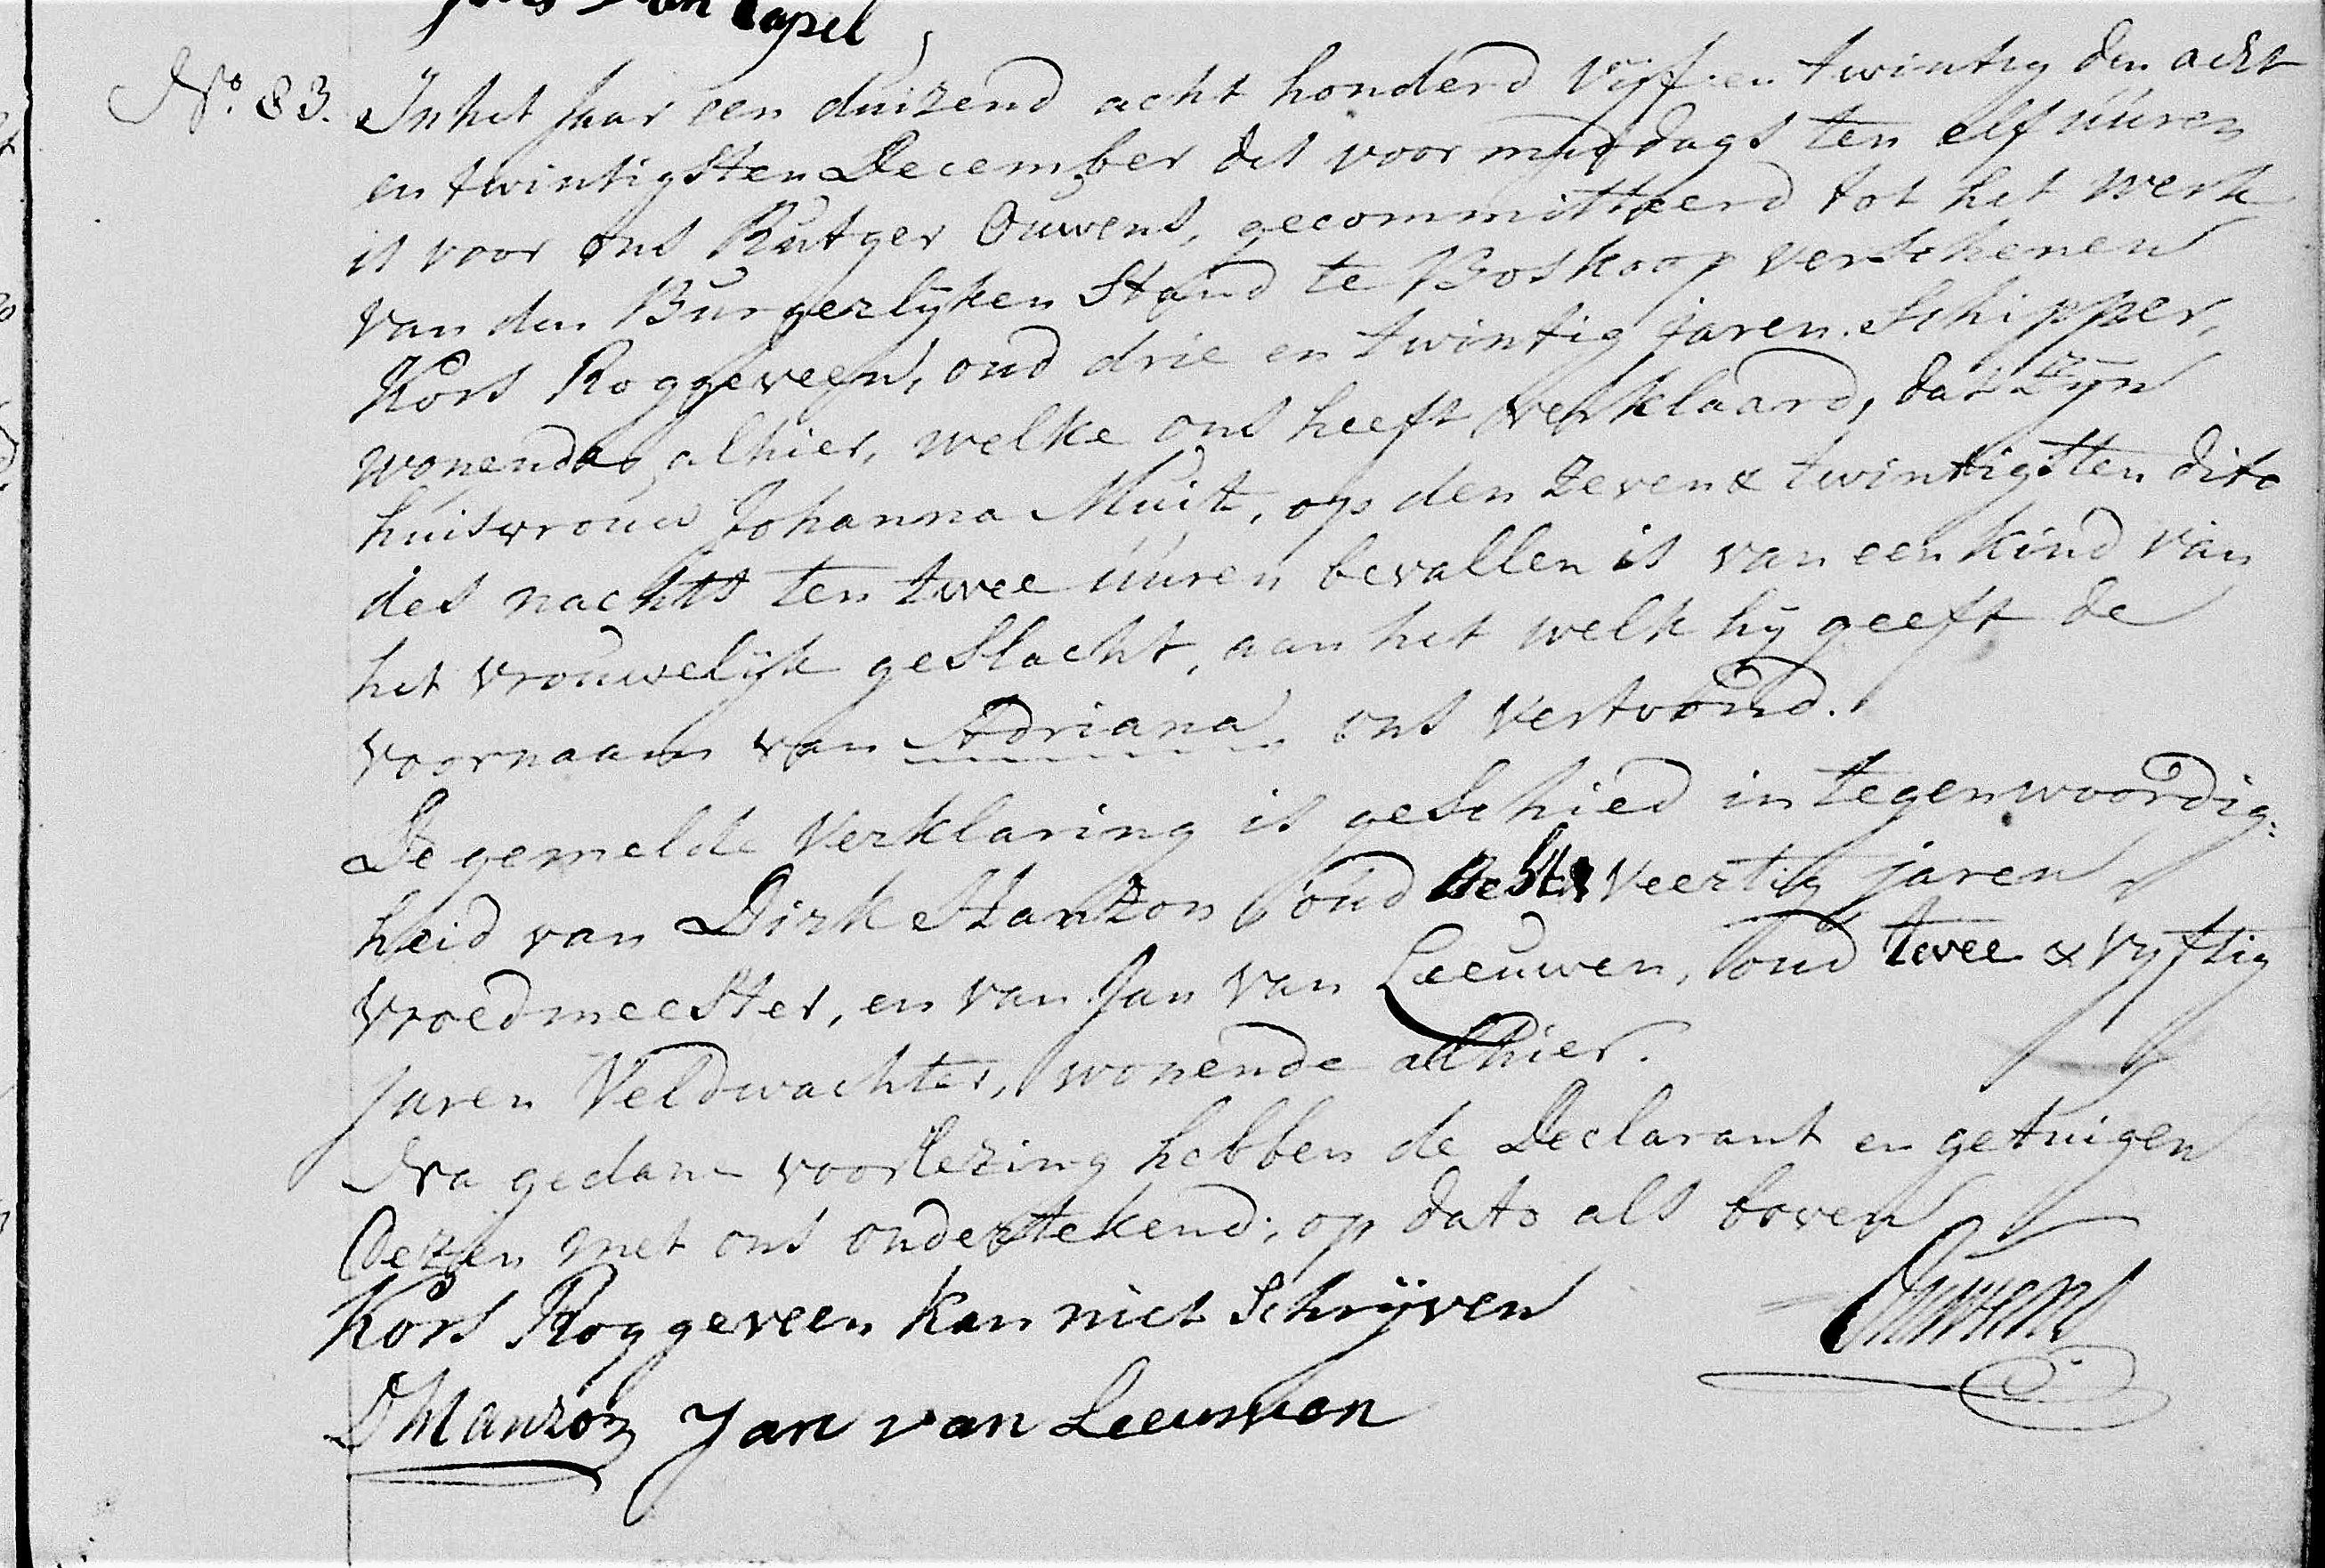 N.o 83.
In het Jaar een duizend acht honderd Vijf en twintig den acht
en twintigsten December des voor middags ten elf uuren
is voor ons Rutger Ouwens, gecommitteerd tot het werk
van den Burgerlijken Stand te Boskoop verschenen
Kors Roggeveen, oud drie en twintig jaren. Schipper,
wonende alhier, welke ons heeft verklaard, dat zijn
huisvrouw Johanna Muit, op den zeven & twintigsten dito
des nachts ten twee uuren bevallen is van een kind van
het vrouwelijk geslacht, aan het welk hij geeft de
voornaam van Adriana ons vertoond.
De gemelde verklaring is geschied in tegenwoordig:
heid van Dirk Manzon oud veertig jaren
vroedmeester, en van Jan van Leeuwen, oud twee & vyftig
jaren Veldwachter, wonende alhier.
Na gedane voorlezing hebben de Declarant en getuigen
dezen met ons ondertekend; op dato als boven
Kors Roggeveen kan niet Schrijven
Ouwens
D Manzon Jan van Leeuwen